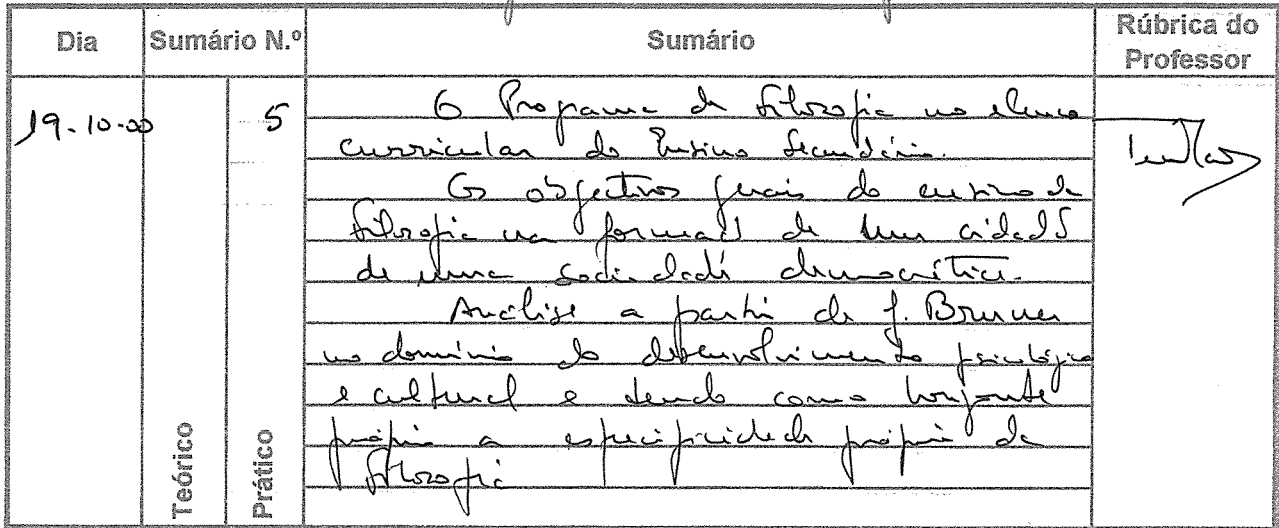 Dia Sumário N.º Sumário Rúbrica do Professor
Teórico Prático
19-10-00 5
O Programa de Filosofia no elenco
curricular do Ensino Secundário.
Os objectivos gerais do ensino da
filosofia na formação de um cidadão
de uma sociedade democrática.
Análise a partir de J. Bruner
no domínio do desenvolvimento psicológico
e cultural e tendo como horizonte
próprio a especificidade própria da
Filosofia